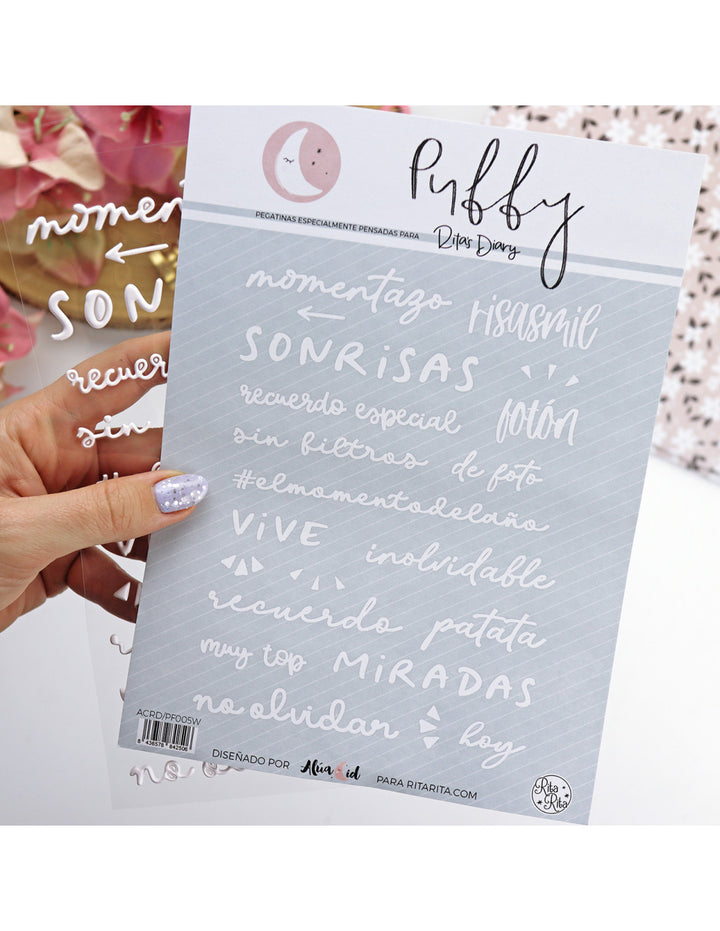 Puffy
PEGATINAS ESPECIALMENTE PENSADAS PARA
Rita's Diary
momentazo
risasmil
SONRISAS
recuerdo especial
fotón
sin filtros
de foto
#elmomentodelaño
ViVE
inolvidable
recuerdo
patata
muy top
MiRADAS
no olvidar
hoy
ACRD/PF005W
8 436578 842506
DISEÑADO POR
PARA RITARITA.COM
Rita
Rita
momen
SON
recuer
sin
no o